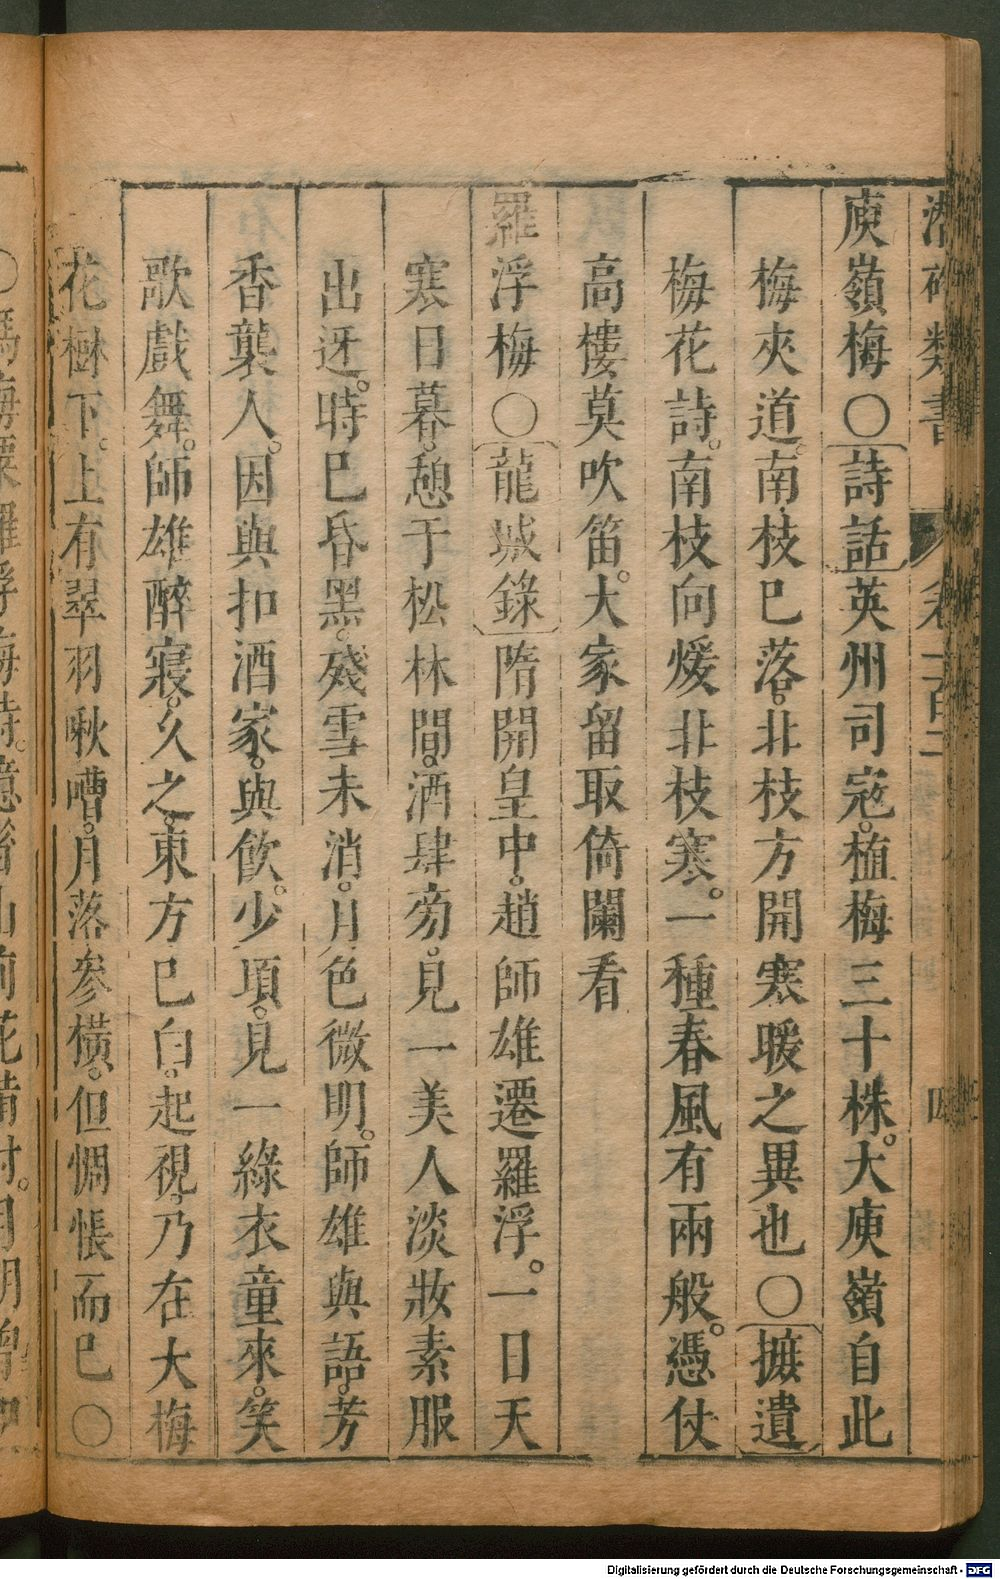 潛確類書 卷一百二 四
庾嶺梅〇詩話英州司寇。植梅三十株。大庾嶺自此
梅夾道。南枝已落。北枝方開寒暖之異也〇摭遺
梅花詩。南枝向煖北枝寒。一種春風有兩般。憑仗
高樓莫吹笛。大家留取倚闌看
羅浮梅〇龍城錄隋開皇中。趙師雄遷羅浮。一日天
寒日暮。憩于松林間。酒肆旁。見一美人淡妝素服
出迓。時已昏黑。殘雪未消。月色微明。師雄與語。芳
香襲人。因與扣酒家。與飲。少頃。見一綠衣童來。笑
歌戲舞。師雄醉寢。久之。東方已白。起視。乃在大梅
花樹下。上有翠羽啾嘈。月落參橫。但惆悵而已〇
Digitalisierung gefördert durch die Deutsche Forschungsgemeinschaft - DFG